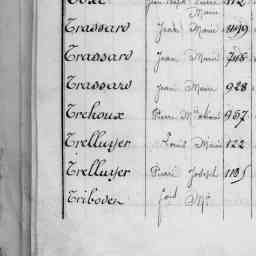 Marie
Trassard Jean Marie
Trassard Jean Marie
Trassard Jean Marie 928
Trehoux Pierre Mathurin 957
Trelluyer Louis Marie 122
Trelluyer Pierre Joseph 1185
Triboden José Me